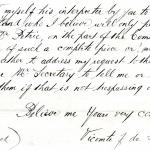 myself his interpreter by you to
and who I believe will only p
Mr Petrie, on the part of the Com
of such a complete price or me
rather to address my request to th
Mr Secretary to tell me or
them if that is not trespassing
Believe me Yours very co
Vicomte J. de